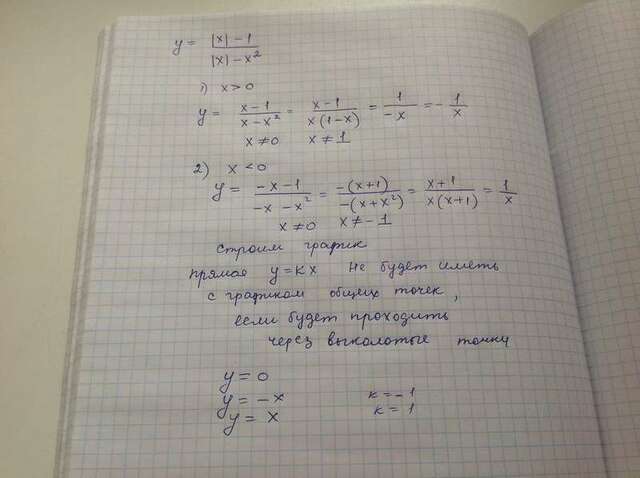 y = |x| - 1 / |x| - x²
1) x > 0
y = x - 1 / x - x² = x - 1 / x(1 - x) = 1 / -x = - 1 / x
x ≠ 0 x ≠ 1
2) x < 0
y = -x - 1 / -x - x² = -(x + 1) / -(x + x²) = x + 1 / x(x + 1) = 1 / x
x ≠ 0 x ≠ -1
строим график
прямая y = kx не будет иметь
с графиком общих точек,
если будет проходить
через выколотые точку
y = 0
y = -x k = -1
y = x k = 1